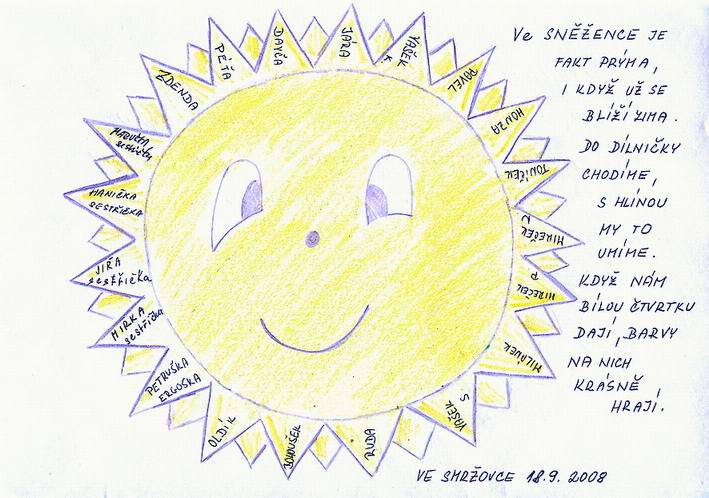 Ve SNĚŽENCE JE
FAKT PRÝMA,
I KDYŽ UŽ SE
BLÍŽÍ ZIMA.
DO DÍLNIČKY
CHODÍME,
S HLÍNOU
MY TO
UMÍME.
KDYŽ NÁM
BÍLOU ČTVRTKU
DAJÍ, BARVY
NA NICH
KRÁSNĚ
HRAJÍ.
VE SMRŽOVCE 18.9. 2008
JÁRA
VAŠEK
K.
PAVEL
HONZA
TONÍČEK
MIREČEK
N
MIREČEK
P
MILÁNEK
VAŠEK
S
RUDA
BOHOUŠEK
OLDÍK
PETRUŠKA
ERGOSKA
MIRKA
sestřička
JIŘA
sestřička
HANIČKA
SESTŘIČKA
sestřička
ZDENDA
PÉŤA
DAVČA